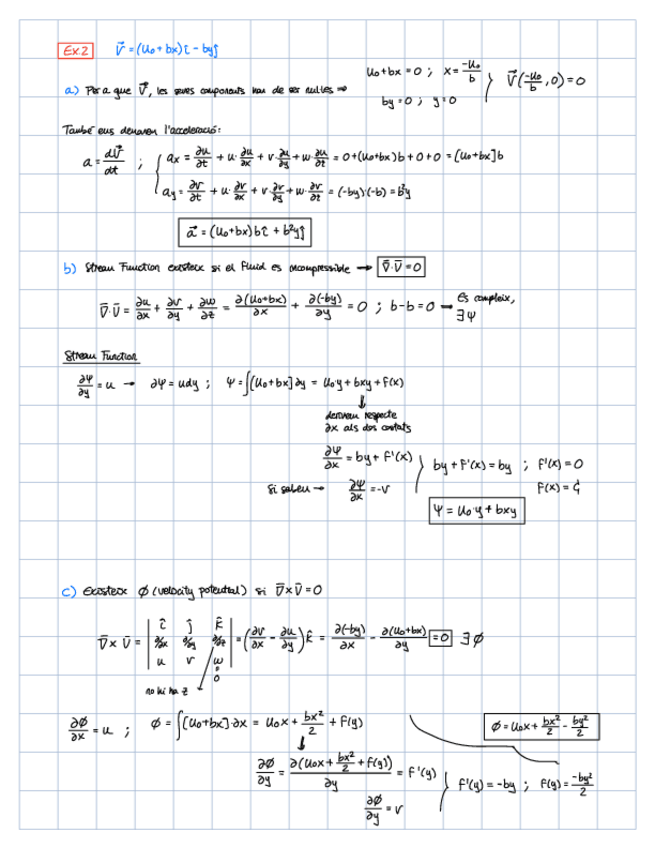 Ex.2 V⃗ = (u₀ + bx) î - by ĵ
a) Per a que V⃗, les seves components han de ser nul·les ⇒ u₀ + bx = 0 ; x = -u₀/b
by = 0 ; y = 0 } V⃗(-u₀/b, 0) = 0
També ens demanen l'acceleració:
a = dV⃗/dt ; { ax = ∂u/∂t + u·∂u/∂x + v·∂u/∂y + w·∂u/∂z = 0 + (u₀+bx)b + 0 + 0 = [u₀+bx]b
ay = ∂v/∂t + u·∂v/∂x + v·∂v/∂y + w·∂v/∂z = (-by)·(-b) = b²y
a⃗ = (u₀+bx)b î + b²y ĵ
b) Stream Function existeix si el fluid es incompressible → ∇·V̄ = 0
∇·V̄ = ∂u/∂x + ∂v/∂y + ∂w/∂z = ∂(u₀+bx)/∂x + ∂(-by)/∂y = 0 ; b - b = 0 → Es compleix,
∃ψ
Stream Function
∂ψ/∂y = u → ∂ψ = u dy ; ψ = ∫[u₀+bx]∂y = u₀y + bxy + f(x)
derivem respecte
∂x als dos costats
∂ψ/∂x = by + f'(x)
by + f'(x) = by ; f'(x) = 0
Si sabem → ∂ψ/∂x = -v
f(x) = C
ψ = u₀·y + bxy
c) Existeix ϕ (velocity potential) si ∇×V̄ = 0
∇×V̄ = | î ĵ k̂
∂/∂x ∂/∂y ∂/∂z
u v w | = (∂v/∂x - ∂u/∂y) k̂ = ∂(-by)/∂x - ∂(u₀+bx)/∂y = 0 ∃ϕ
0
no hi ha z
∂ϕ/∂x = u ; ϕ = ∫[u₀+bx]·∂x = u₀x + bx²/2 + f(y)
ϕ = u₀x + bx²/2 - by²/2
∂ϕ/∂y = ∂(u₀x + bx²/2 + f(y))/∂y = f'(y)
f'(y) = -by ; f(y) = -by²/2
∂ϕ/∂y = v